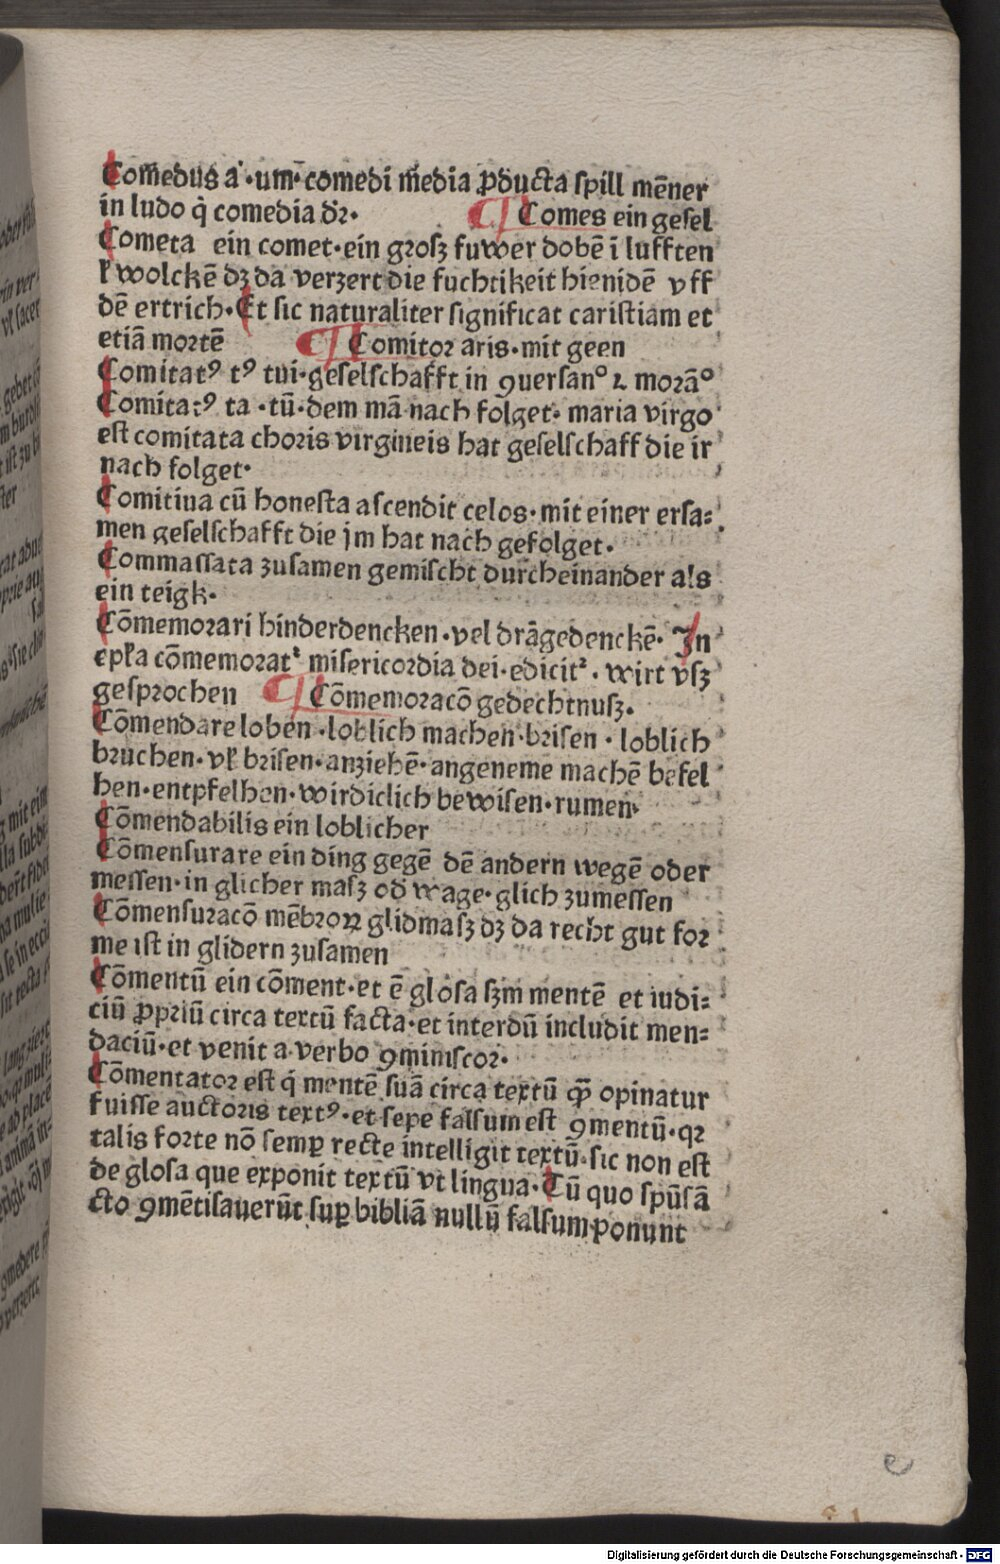 Comedus a·um·comedi media ꝓducta spill mēner
in ludo q̇ comedia dꝛ· ¶ Comes ein gesel
Cometa ein comet·ein grosz fuwer dobē ī lufften
ꝟ wolckē dz da verzert die fuchtikeit hienidē vff
dē ertrich·Et sic naturaliter significat caristiam et
etiā mortē ¶ Comitor aris·mit geen
Comitatꝰ tꝰ tui·geselschafft in ꝯuersanº ⁊ moꝛāº
Comitatꝰ ta·tū·dem mā nach folget·maria virgo
est comitata choris virgineis hat geselschaff die ir
nach folget·
Comitiua cū honesta ascendit celos·mit einer ersa⸗
men geselschafft die jm hat nach gefolget·
Commassata zusamen gemischt durcheinander als
ein teigk·
Cōmemorari hinderdencken·vel drāgedenckē· In
epl̄a cōmemorat᷑ misericordia dei·edicit᷑· wirt vsz
gesprochen ¶ Cōmemoracō gedechtnusz·
Cōmendare loben·loblich machen·brisen·loblich
bruchen·vꝉ brisen·anziehē·angeneme machē befel
hen·entpfelhen·wirdiclich bewisen·rumen·
Cōmendabilis ein loblicher
Cōmensurare ein ding gegē dē andern wegē oder
messen·in glicher masz od wage·glich zumessen
Cōmensuracō mēbroꝝ glidmasz dz da recht gut for
me ist in glidern zusamen
Cōmentū ein cōment·et ē glosa szm mentē et iudi⸗
ciū ꝓpriū circa textū facta·et interdū includit men⸗
daciū·et venit a verbo ꝯminiscor·
Cōmentator est q̇ mentē suā circa textū ꝙ opinatur
fuisse auctoris textꝰ·et sepe falsum est ꝯmentū·qꝛ
talis forte nō semꝑ recte intelligit textū·sic non est
de glosa que exponit textū vt lingua·Tū quo spūsā
cto ꝯmētisauerūt suꝑ bibliā nullū falsum ponunt
e
Digitalisierung gefördert durch die Deutsche Forschungsgemeinschaft · DFG